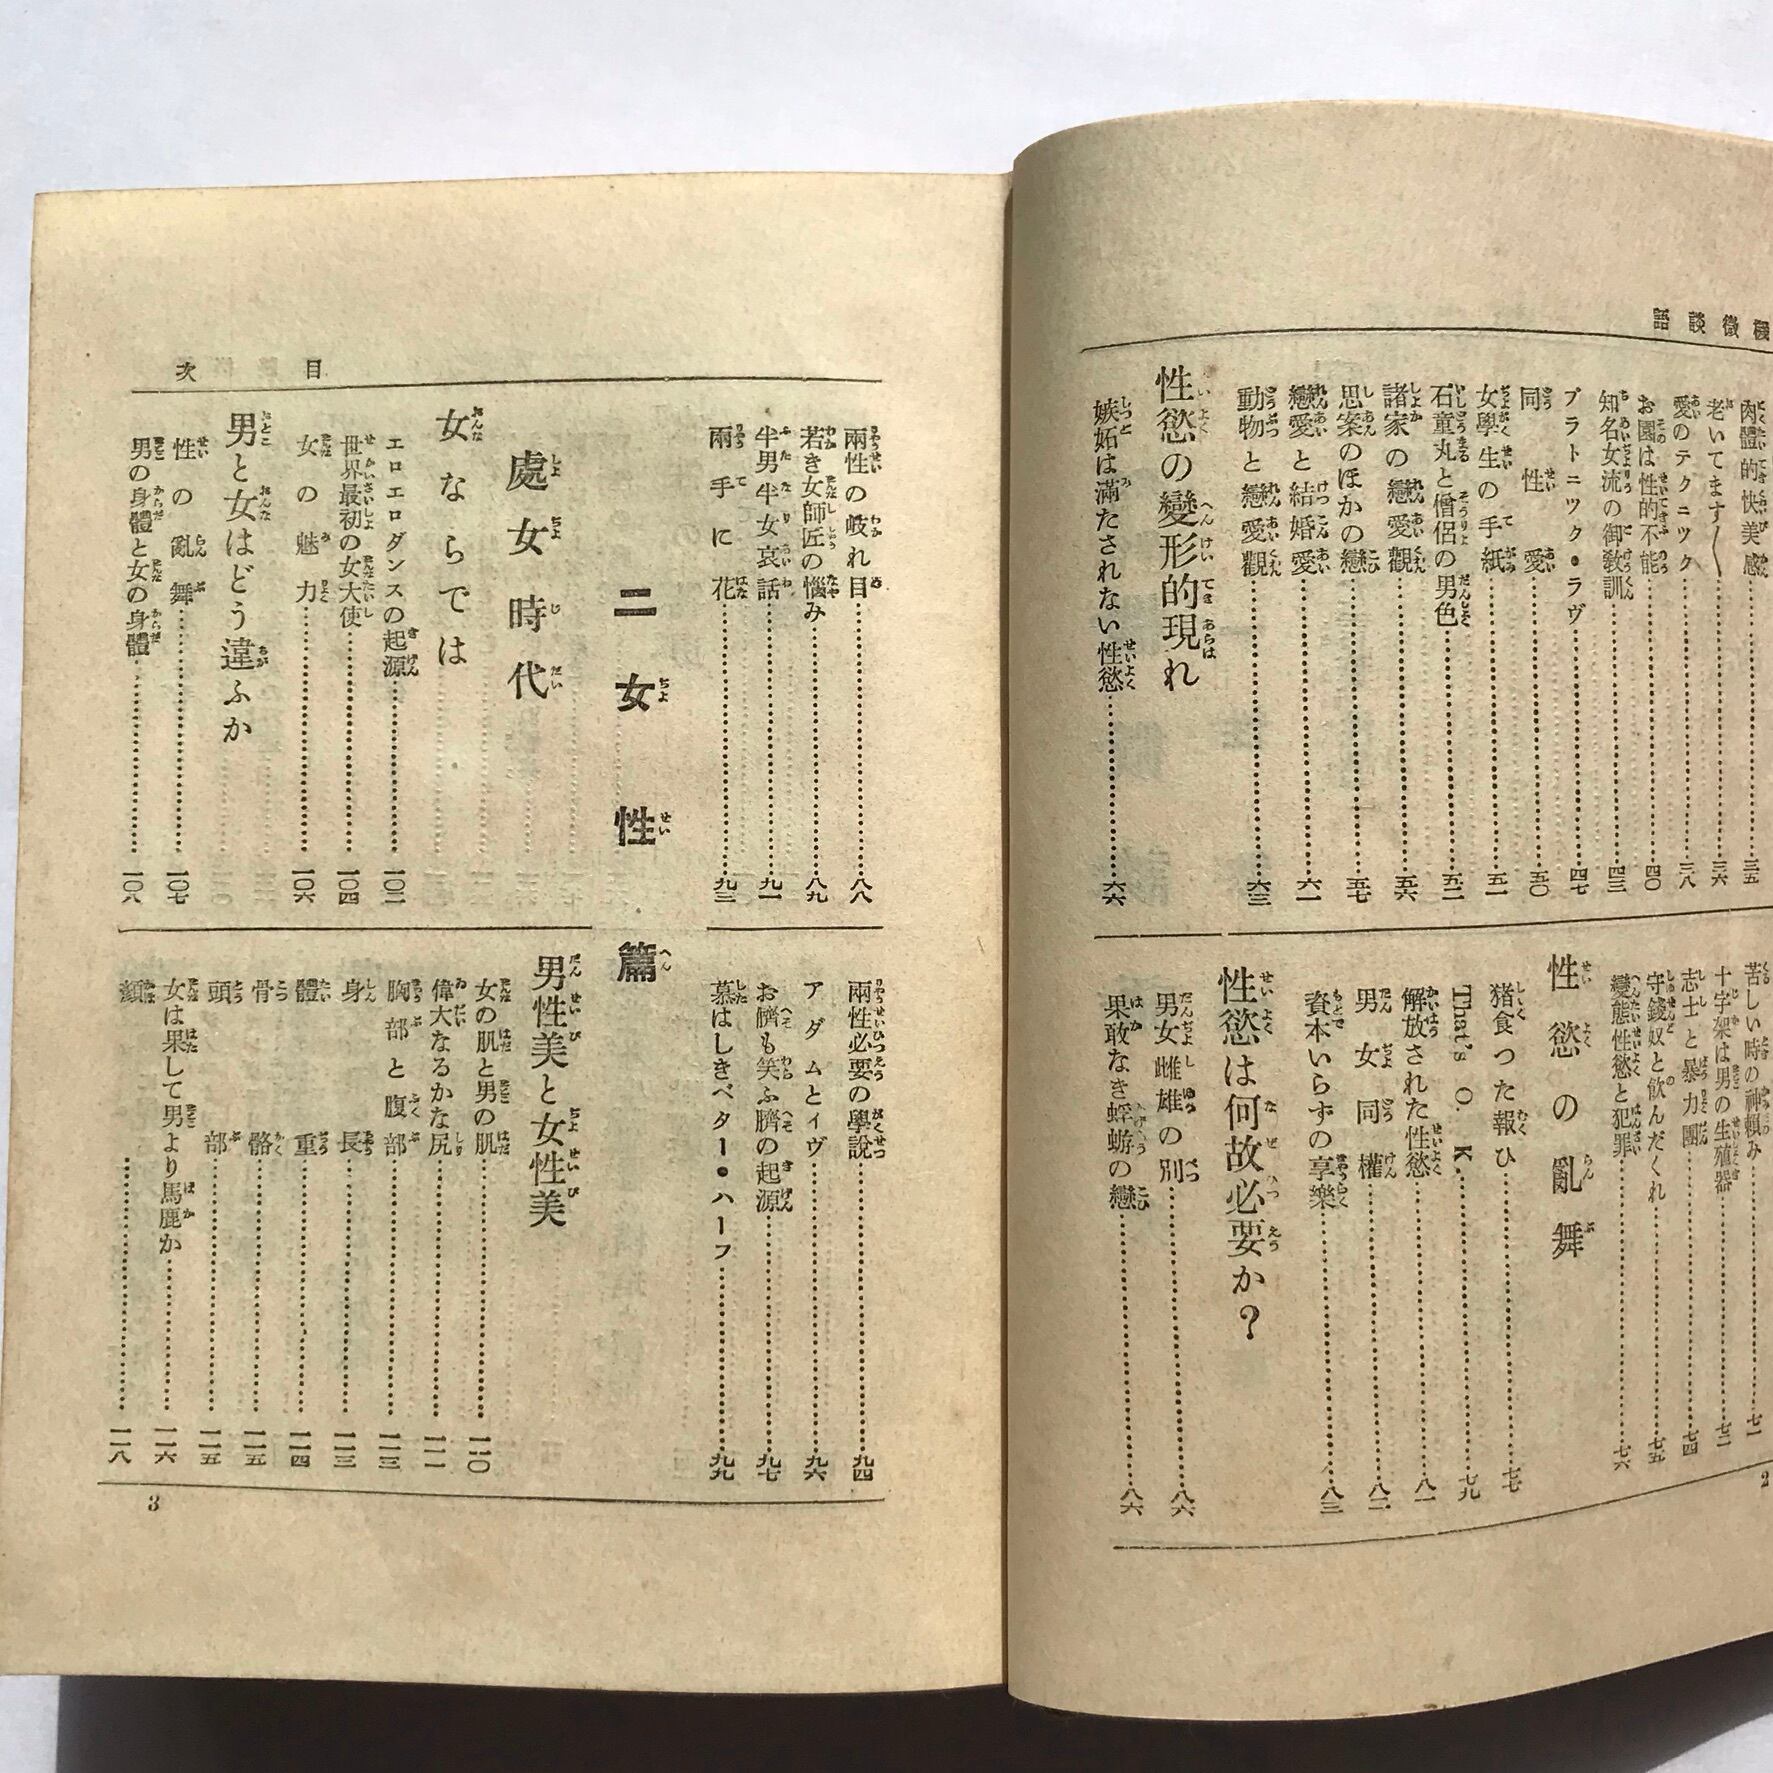 機微談語
肉體的快美感…………三五
老いてます〳〵…………三六
愛のテクニツク…………三八
お園は性的不能…………四〇
知名女流の御敎訓…………四三
プラトニツク・ラヴ…………四七
同性愛…………五〇
女學生の手紙…………五一
石童丸と僧侶の男色…………五二
諸家の戀愛觀…………五六
思案のほかの戀…………五七
戀愛と結婚愛…………六一
動物と戀愛觀…………六三
性慾の變形的現れ
嫉妬は滿たされない性慾…………六六
苦しい時の神賴み…………七一
十字架は男の生殖器…………七三
志士と暴力團…………七四
守錢奴と飮んだくれ…………七五
變態性慾と犯罪…………七六
性慾の亂舞
猪食つた報ひ…………七七
That's O. K.…………七九
解放された性慾…………八一
男女同權…………八二
資本いらずの享樂…………八三
性慾は何故必要か？
男女雌雄の別…………八六
果敢なき蜉蝣の戀…………八六
2
目次
兩性の岐れ目…………八八
若き女師匠の惱み…………八九
半男半女哀話…………九一
兩手に花…………九三
兩性必要の學說…………九四
アダムとイヴ…………九六
お臍も笑ふ臍の起源…………九七
慕はしきベター・ハーフ…………九九
二 女性篇
處女時代
女ならでは
エロエロダンスの起源…………一〇二
世界最初の女大使…………一〇四
女の魅力…………一〇六
男と女はどう違ふか
性の亂舞…………一〇七
男の身體と女の身體…………一〇八
男性美と女性美
女の肌と男の肌…………一一〇
偉大なるかな尻…………一一一
胸部と腹部…………一一三
身長…………一一三
體重…………一一四
骨骼…………一一五
頭部…………一一五
女は果して男より馬鹿か…………一一六
顏…………一一八
3